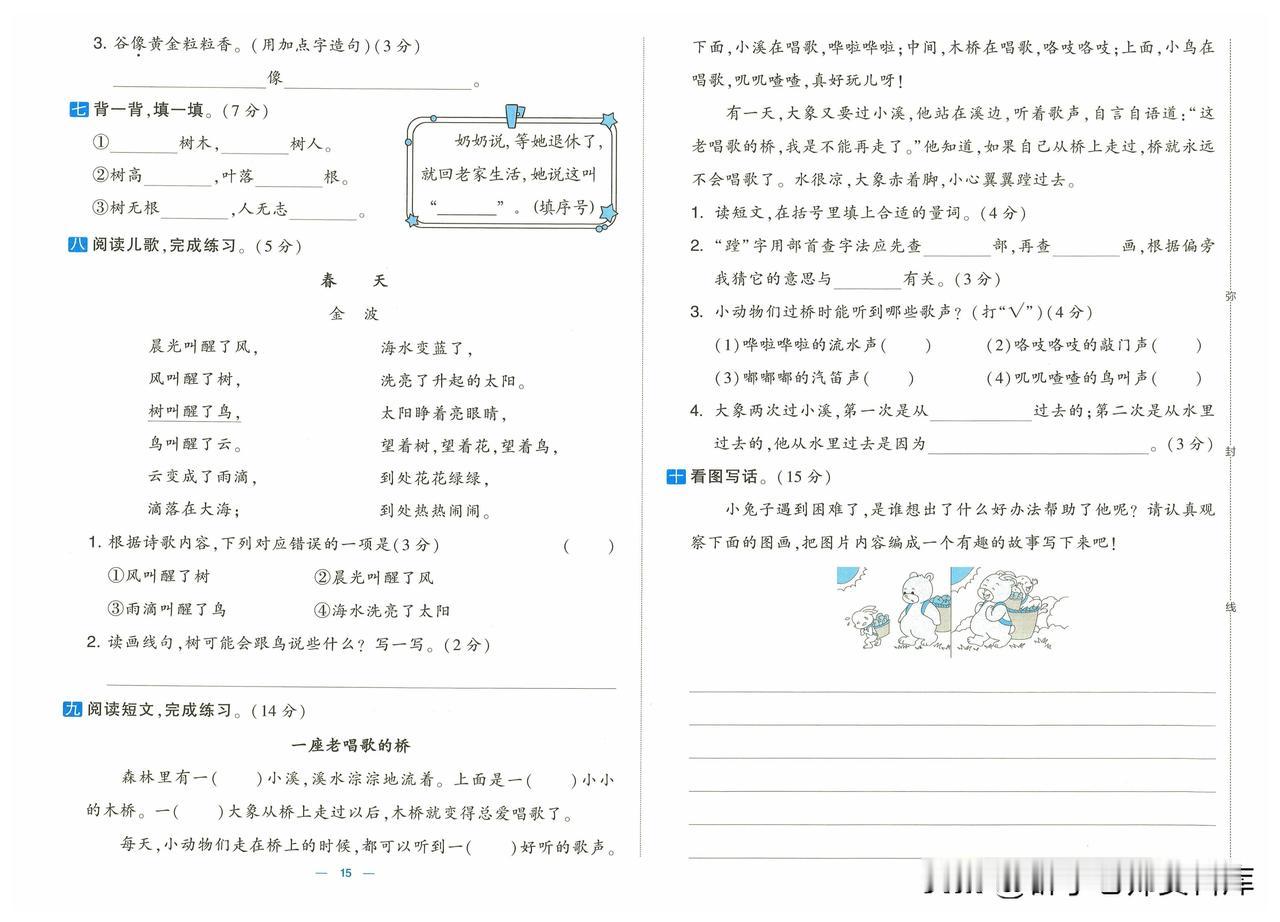 3. 谷像黄金粒粒香。(用加点字造句)(3分)
____________像____________。
七 背一背,填一填。(7分)
①______树木,______树人。
②树高______,叶落______根。
③树无根______,人无志______。
奶奶说,等她退休了,
就回老家生活,她说这叫
“______”。(填序号)
八 阅读儿歌,完成练习。(5分)
春 天
金 波
晨光叫醒了风,
风叫醒了树,
树叫醒了鸟,
鸟叫醒了云。
云变成了雨滴,
滴落在大海;
海水变蓝了,
洗亮了升起的太阳。
太阳睁着亮眼睛,
望着树,望着花,望着鸟,
到处花花绿绿,
到处热热闹闹。
1. 根据诗歌内容,下列对应错误的一项是(3分) ( )
①风叫醒了树 ②晨光叫醒了风
③雨滴叫醒了鸟 ④海水洗亮了太阳
2. 读画线句,树可能会跟鸟说些什么?写一写。(2分)
九 阅读短文,完成练习。(14分)
一座老唱歌的桥
森林里有一( )小溪,溪水淙淙地流着。上面是一( )小小
的木桥。一( )大象从桥上走过以后,木桥就变得总爱唱歌了。
每天,小动物们走在桥上的时候,都可以听到一( )好听的歌声。
— 15 —
下面,小溪在唱歌,哗啦哗啦;中间,木桥在唱歌,咯吱咯吱;上面,小鸟在
唱歌,叽叽喳喳,真好玩儿呀!
有一天,大象又要过小溪,他站在溪边,听着歌声,自言自语道:“这
老唱歌的桥,我是不能再走了。”他知道,如果自己从桥上走过,桥就永远
不会唱歌了。水很凉,大象赤着脚,小心翼翼蹚过去。
1. 读短文,在括号里填上合适的量词。(4分)
2. “蹚”字用部首查字法应先查______部,再查______画,根据偏旁
我猜它的意思与______有关。(3分)
3. 小动物们过桥时能听到哪些歌声?(打“√”)(4分)
(1)哗啦哗啦的流水声( ) (2)咯吱咯吱的敲门声( )
(3)嘟嘟嘟的汽笛声( ) (4)叽叽喳喳的鸟叫声( )
4. 大象两次过小溪,第一次是从__________过去的;第二次是从水里
过去的,他从水里过去是因为____________________。(3分)
十 看图写话。(15分)
小兔子遇到困难了,是谁想出了什么好办法帮助了他呢?请认真观
察下面的图画,把图片内容编成一个有趣的故事写下来吧!
弥
封
线